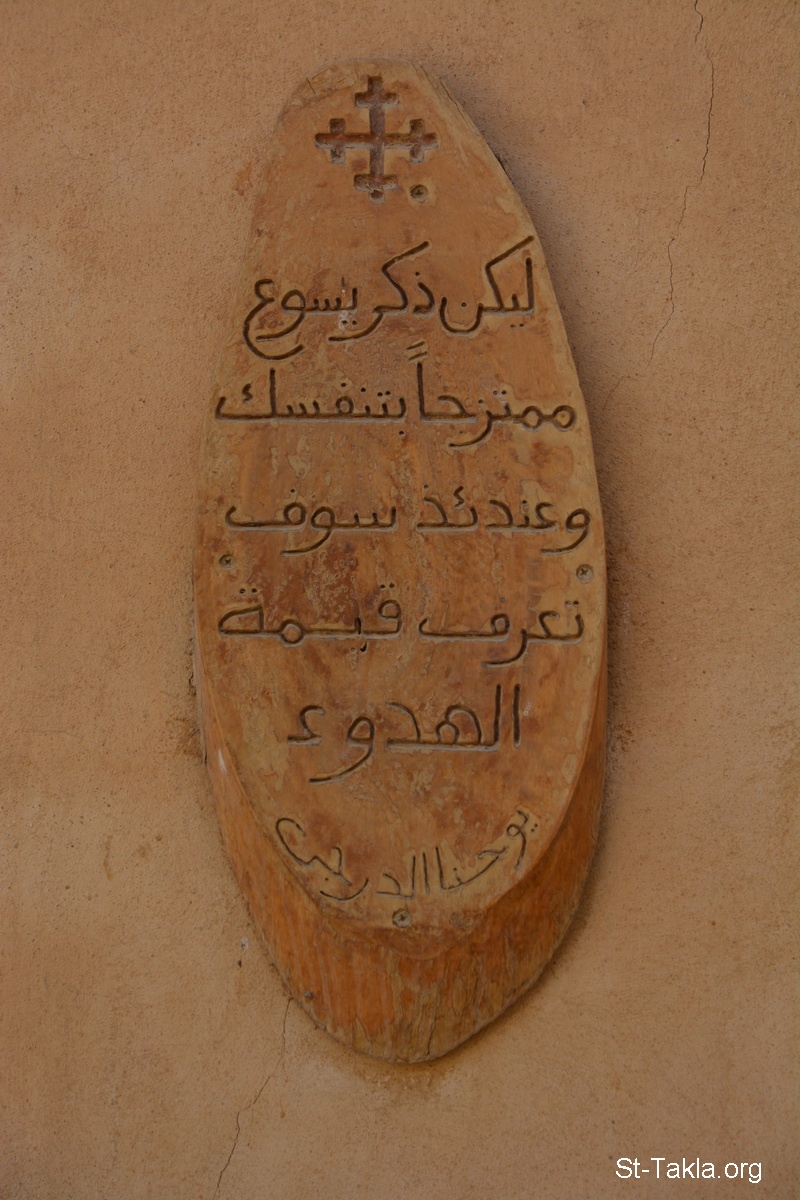 ليكن ذكر يسوع
ممتزجاً بتنفسك
وعندئذ سوف
تعرف قيمة
الهدوء
يوحنا الدرجى
St-Takla.org